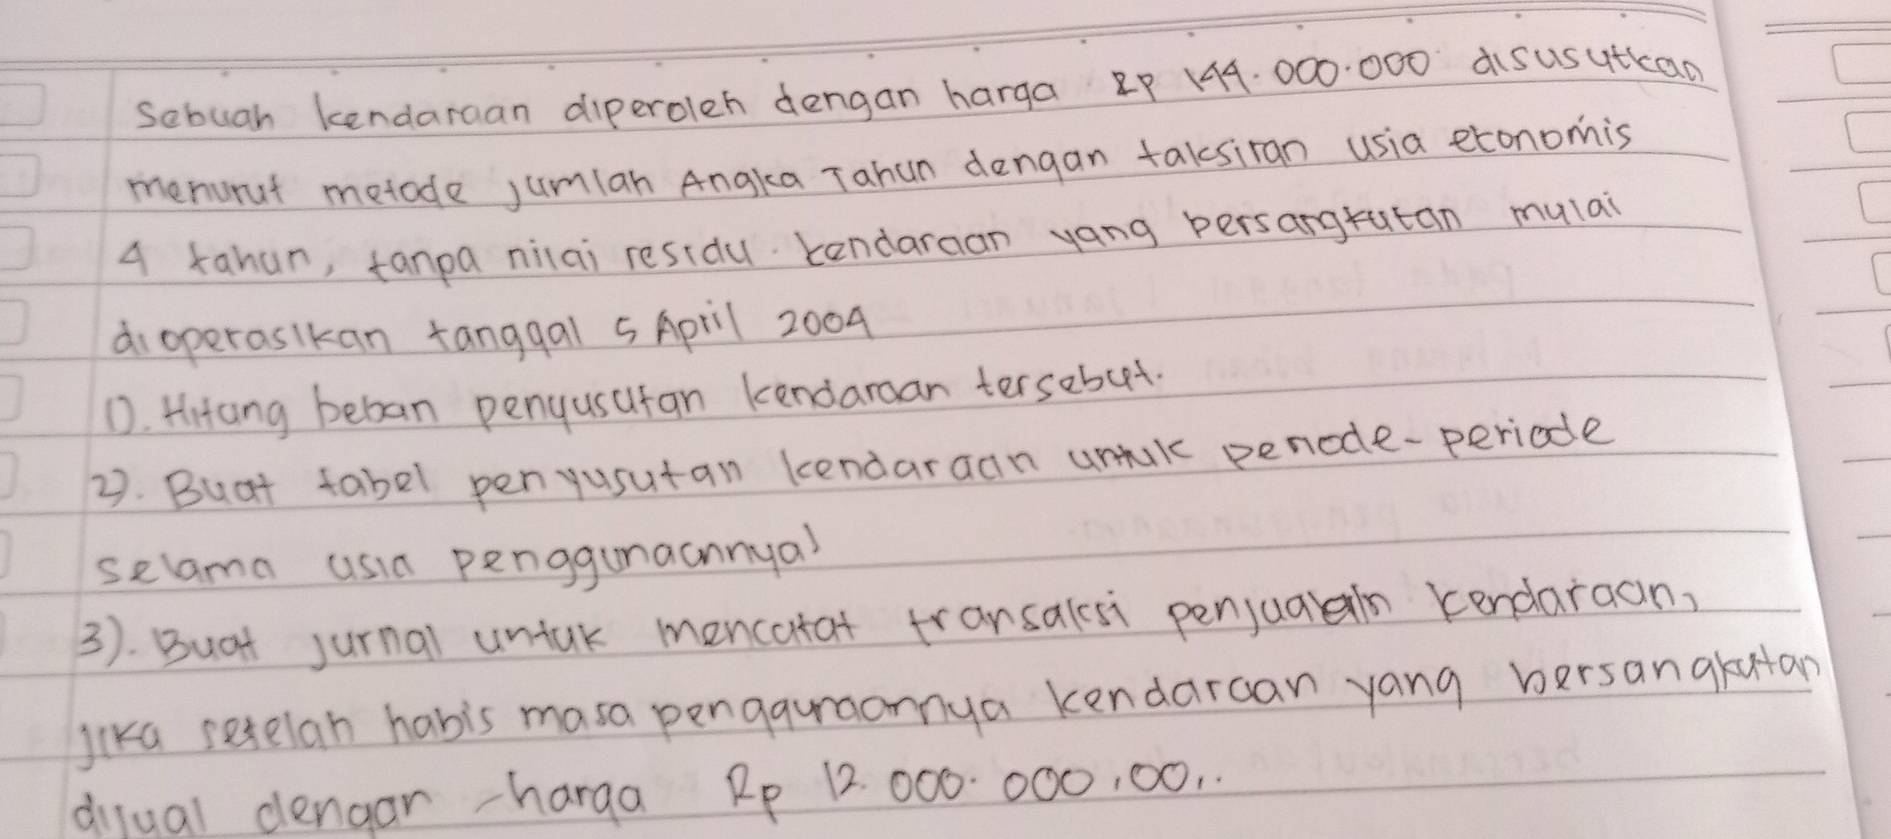 Sebuah kendaraan diperoleh dengan harga Rp 144.000.000 disusutkan
menurut metode jumlah Angka Tahun dengan taksiran usia ekonomis
4 tahun, tanpa nilai residu. kendaraan yang bersangkutan mulai
dioperasikan tanggal 5 April 2004
1). Hitung beban penyusutan kendaraan tersebut.
2). Buat tabel penyusutan kendaraan untuk periode-periode
selama usia penggunaannya!
3). Buat jurnal untuk mencatat transaksi penjualan kendaraan,
jika setelah habis masa penggunaannya kendaraan yang bersangkutan
dijual dengan harga Rp 12.000.000,00,.